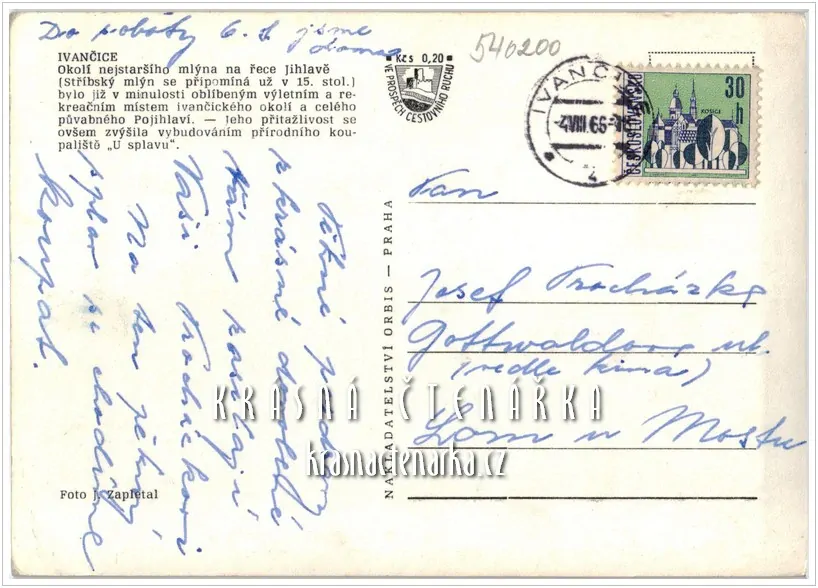 Do soboty 6. t. jsme
doma
540200
IVANČICE
Okolí nejstaršího mlýna na řece Jihlavě
(Stříbský mlýn se připomíná už v 15. stol.)
bylo již v minulosti oblíbeným výletním a re-
kreačním místem ivančického okolí a celého
půvabného Pojihlaví. — Jeho přitažlivost se
ovšem zvýšila vybudováním přírodního kou-
paliště „U splavu".
Kčs 0,20
VE PROSPĚCH CESTOVNÍHO RUCHU
IVANČI
-4.VIII.66
ČESKOSLOVENSKO
30
h
KOŠICE
pozdrav
z krásné dovolené
Vám posílají
Vaši Procházkovi
Na ten pěkný
splav se chodíme
koupat.
NAKLADATELSTVÍ ORBIS — PRAHA
Pan
Josef Procházka
Gottwaldova ul.
(vedle kina)
Lom u Mostu
KRÁSNÁ ČTENÁŘKA
krasnactenarka.cz
Foto J. Zapletal